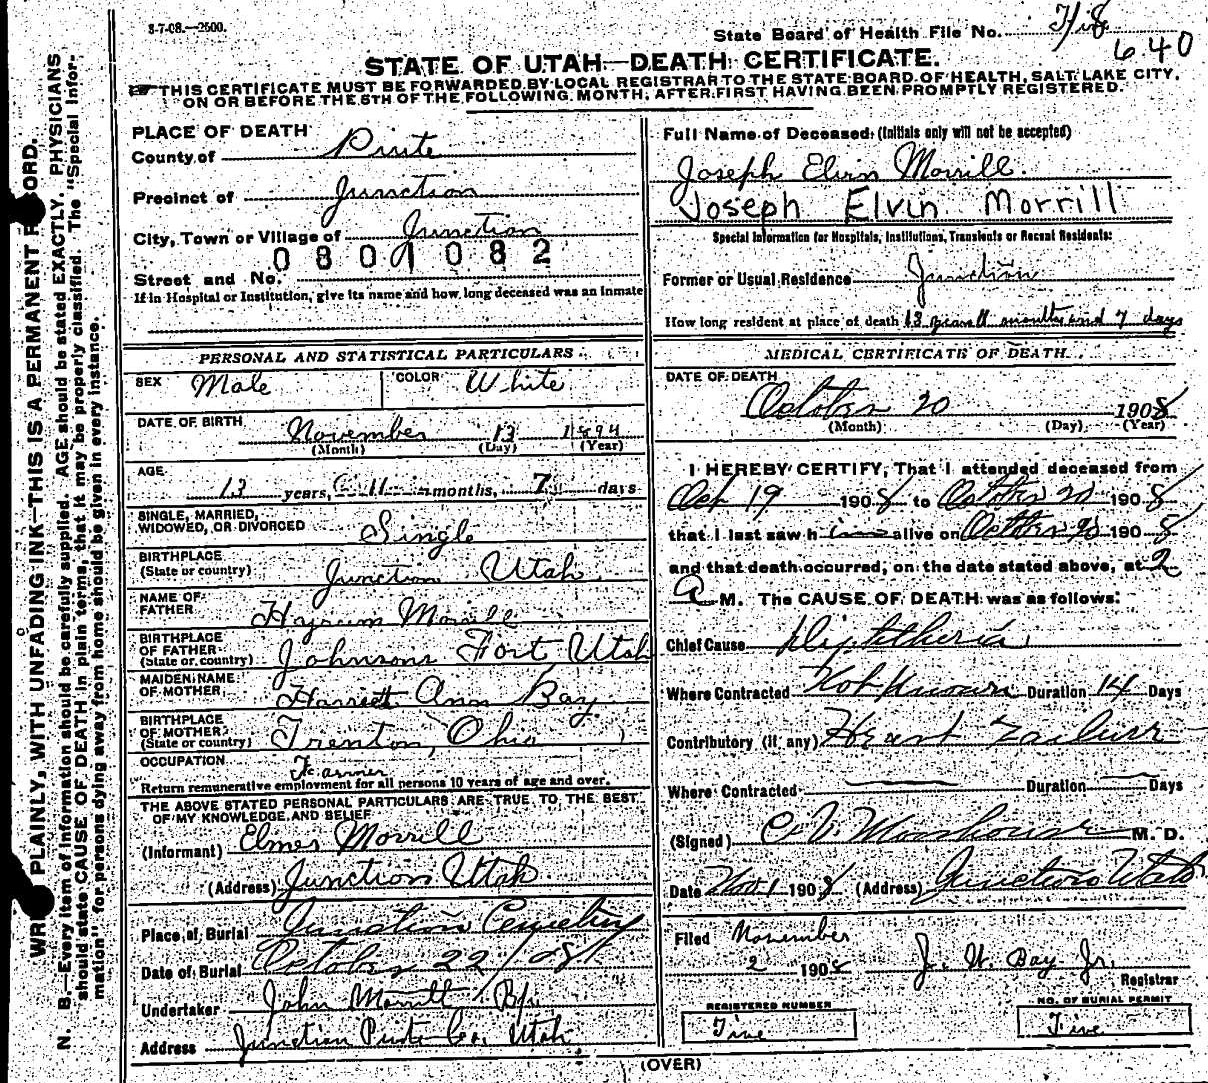 3-7-08.—2500.
State Board of Health File No. 7/18
640
STATE OF UTAH—DEATH CERTIFICATE.
THIS CERTIFICATE MUST BE FORWARDED BY LOCAL REGISTRAR TO THE STATE BOARD OF HEALTH, SALT LAKE CITY,
ON OR BEFORE THE 5TH OF THE FOLLOWING MONTH, AFTER FIRST HAVING BEEN PROMPTLY REGISTERED.
WRITE PLAINLY, WITH UNFADING INK—THIS IS A PERMANENT RECORD.
N. B.—Every item of information should be carefully supplied. AGE should be stated EXACTLY. PHYSICIANS
should state CAUSE OF DEATH in plain terms, that it may be properly classified. The "Special Infor-
mation" for persons dying away from home should be given in every instance.
PLACE OF DEATH
County of Piute
Precinct of Junction
City, Town or Village of Junction
0801082
Street and No.
If in Hospital or Institution, give its name and how long deceased was an inmate
PERSONAL AND STATISTICAL PARTICULARS
SEX Male COLOR White
DATE OF BIRTH November 13 1894
(Month) (Day) (Year)
AGE
13 years, 11 months, 7 days
SINGLE, MARRIED,
WIDOWED, OR DIVORCED Single
BIRTHPLACE
(State or country) Junction Utah
NAME OF
FATHER Hyrum Morrill
BIRTHPLACE
OF FATHER
(State or country) Johnsons Fort Utah
MAIDEN NAME
OF MOTHER Harriett Ann Bay
BIRTHPLACE
OF MOTHER
(State or country) Trenton, Ohio
OCCUPATION Farmer
Return remunerative employment for all persons 10 years of age and over.
THE ABOVE STATED PERSONAL PARTICULARS ARE TRUE TO THE BEST
OF MY KNOWLEDGE AND BELIEF
(Informant) Elmer Morrill
(Address) Junction Utah
Place of Burial Junction Cemetery
Date of Burial October 22/08
Undertaker John Morrill
Address Junction Piute Co. Utah
Full Name of Deceased: (Initials only will not be accepted)
Joseph Elvin Morrill.
Joseph Elvin Morrill
Special Information for Hospitals, Institutions, Transients or Recent Residents:
Former or Usual Residence Junction
How long resident at place of death 13 years 11 months and 7 days
MEDICAL CERTIFICATE OF DEATH
DATE OF DEATH
October 20 1908
(Month) (Day) (Year)
I HEREBY CERTIFY, That I attended deceased from
Oct 19 1908 to October 20 1908
that I last saw him alive on October 20 1908
and that death occurred, on the date stated above, at 2
A M. The CAUSE OF DEATH was as follows:
Chief Cause Diphtheria
Where Contracted Not Known Duration 14 Days
Contributory (if any) Heart Failure
Where Contracted Duration Days
(Signed) M. D.
Date Nov 1 1908 (Address) Junction Utah
Filed November
2 1908 J. W. Bay Jr.
Registrar
REGISTERED NUMBER
Five
NO. OF BURIAL PERMIT
Five
(OVER)